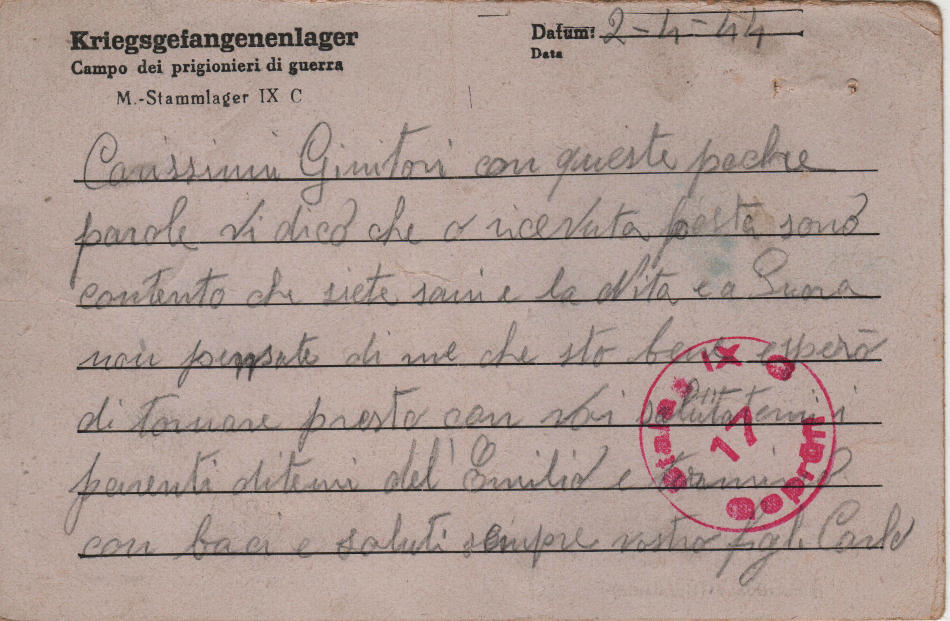 Kriegsgefangenenlager
Campo dei prigionieri di guerra
M.-Stammlager IX C
Datum: 2-4-44
Data
Carissimi Genitori con queste poche
parole vi dico che o ricevuta posta sono
contento che siete sani e la vita e a
non pensate di me che sto bene espero
di tornare presto con voi salutatemi i
parenti ditemi del Emilio e
con baci e saluti sempre vostro figl. Carlo
Stalag IX C
17
Geprüft